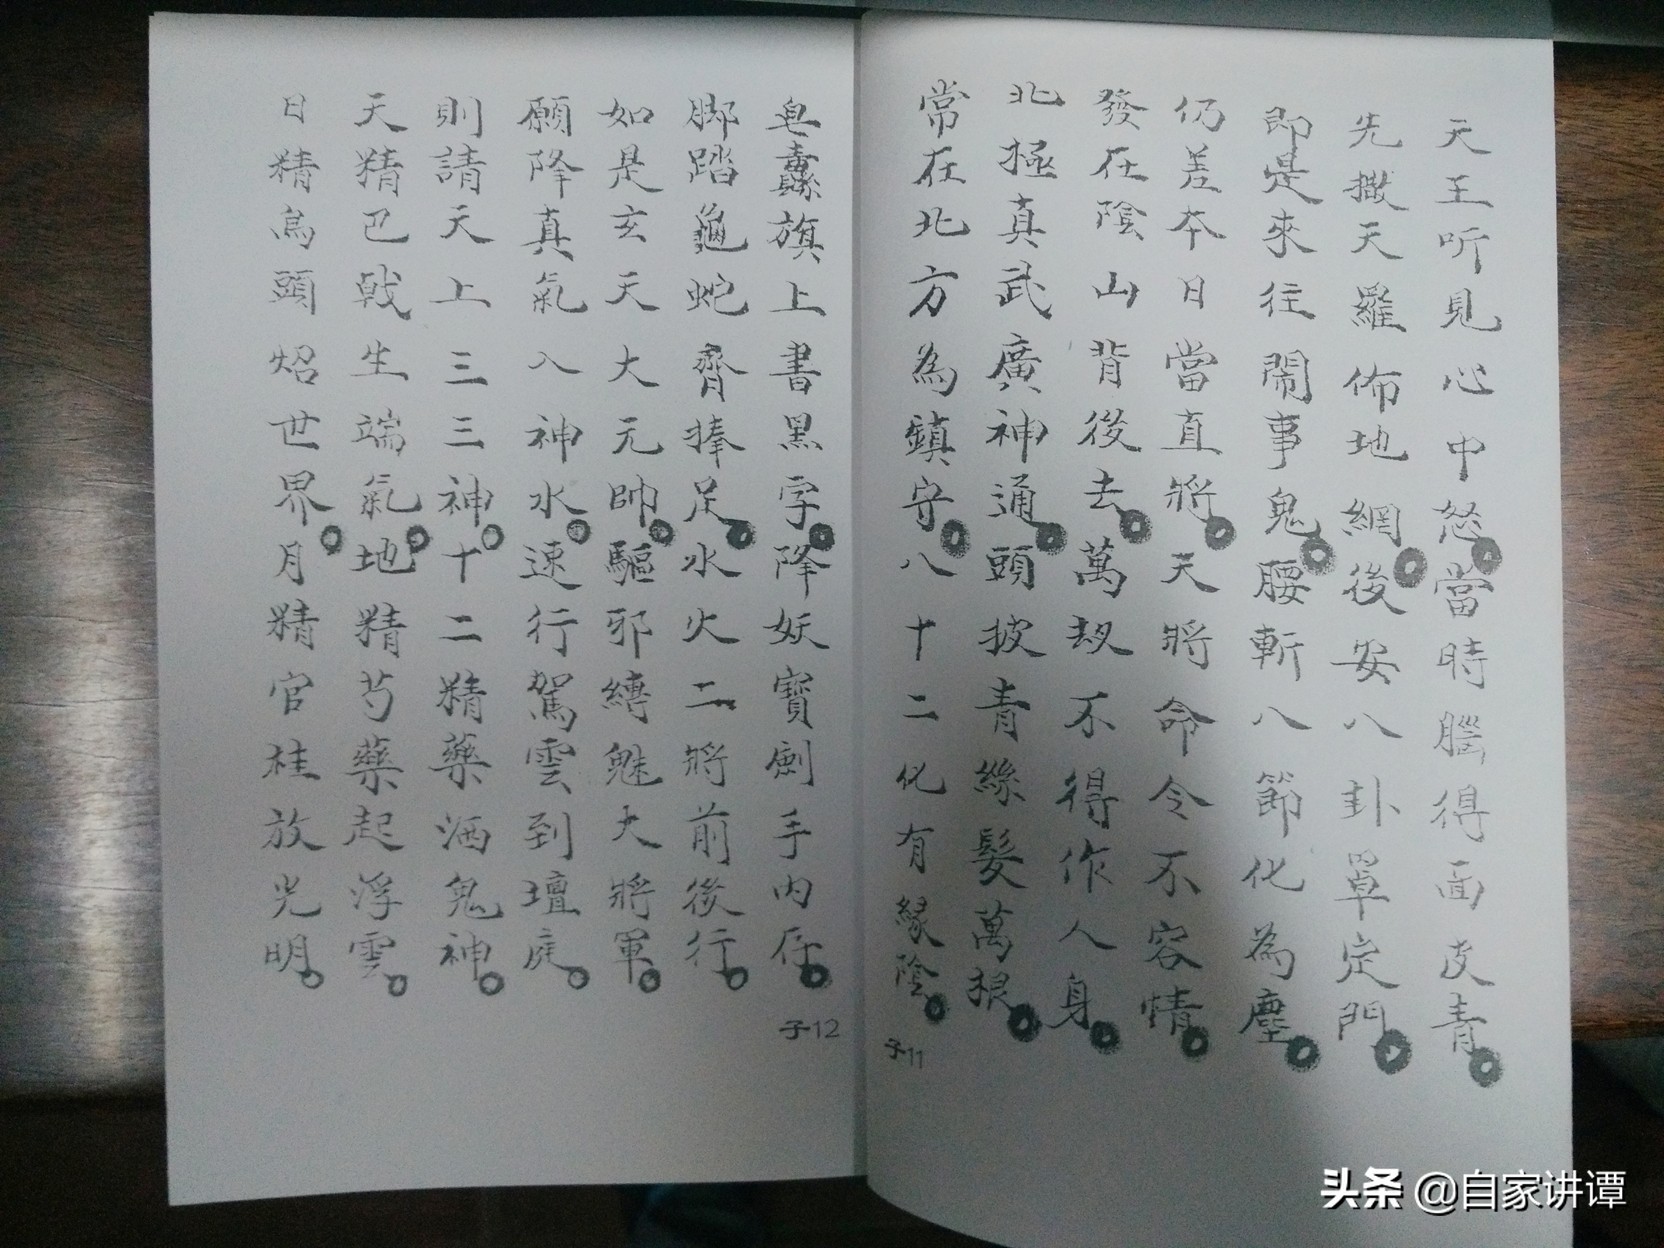 天王听見心中怒當時腦得面皮青
先撒天羅佈地網後安八卦罩定門
即是來往鬧事鬼腰斬八節化為塵
仍差本日當直將天將命令不容情
發在陰山背後去萬劫不得作人身
北極真武廣神通頭披青絲髮萬根
常在北方為鎮守八十二化有緣陰
子11
皂纛旗上書黑字降妖寶劍手內存
脚踏龜蛇齊捧足水火二將前後行
如是玄天大元帥驅邪縛魅大將軍
願降真氣入神水速行駕雲到壇庭
則請天上三三神十二精藥洒鬼神
天精巴戟生端氣地精芍藥起浮雲
日精烏頭炤世界月精官桂放光明
子12
头条 @自家讲谭